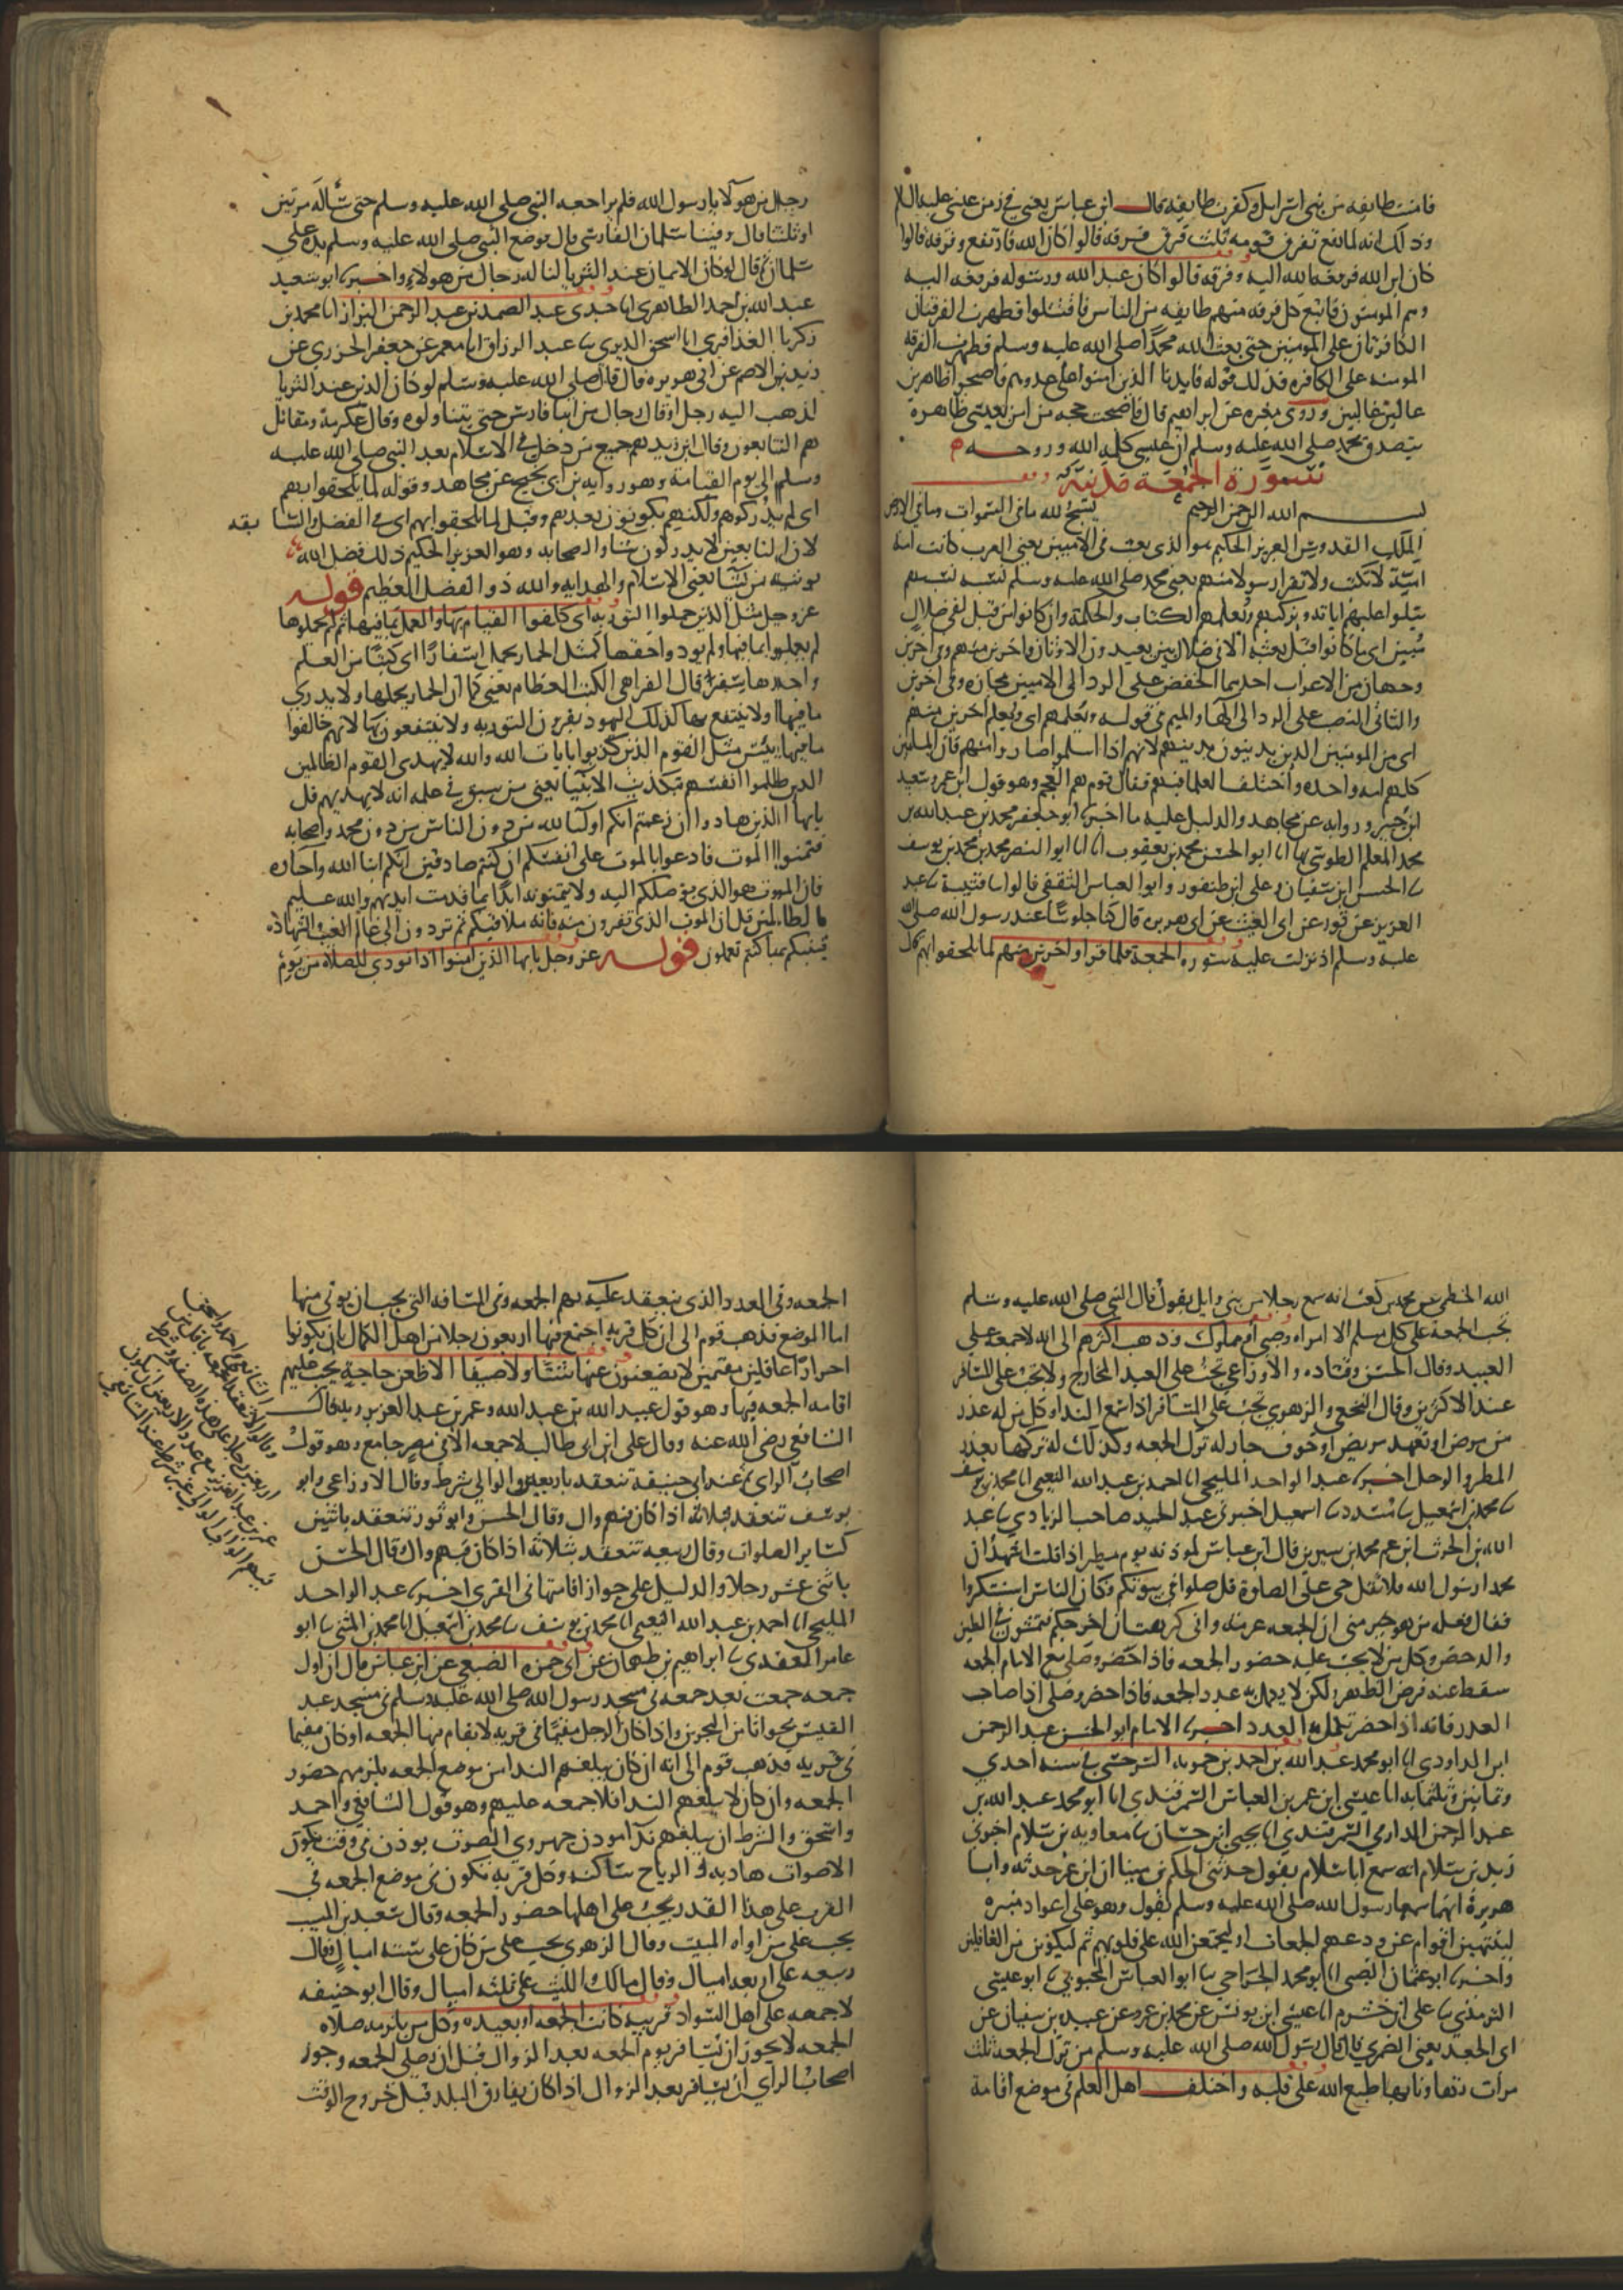 فامنت طايفه من بنى اسرايل وكفرت طايفه قال ابن عباس يعنى في زمن عيسى عليه السلام
وذلك انه لما رفع تفرق قومه ثلث فرق فرقه قالوا كان الله فارتفع وفرقه قالوا
كان ابن الله فرفعه الله اليه وفرقه قالوا كان عبد الله ورسوله فرفعه اليه
وهم المومنون فاتبع كل فرقه منهم طايفه من الناس فاقتتلوا فظهرت الفرقتان
الكافرتان على المومنين حتى بعث الله محمدا صلى الله عليه وسلم فظهرت الفرقه
المومنه على الكافره فذلك قوله فايدنا الذين امنوا على عدوهم فاصبحوا ظاهرين
عالين غالبين وروى مغيره عن ابراهيم قال فاصبحت حجه من امن بعيسى ظاهرة
بتصديق محمد صلى الله عليه وسلم ان عيسى كلمه الله وروحه
سورة الجمعة مدنية
بسم الله الرحمن الرحيم يسبح لله ما فى السموات وما فى الارض
الملك القدوس العزيز الحكيم هو الذى بعث فى الاميين يعنى العرب كانت امة
امية لا تكتب ولا تقرا رسولا منهم يعنى محمد صلى الله عليه وسلم نسبه نسبهم
يتلوا عليهم اياته ويزكيهم ويعلمهم الكتاب والحكمة وان كانوا من قبل لفى ضلال
مبين اى ما كانوا قبل بعثه الا فى ضلال مبين يعبدون الاوثان واخرين منهم وفى اخرين
وجهان من الاعراب احدهما الخفض على الرد الى الاميين مجازه وفى اخرين
والثانى النصب على الرد الى الها والميم فى قوله ويعلمهم اى ويعلم اخرين منهم
اى من المومنين الذين يدينون بدينهم لانهم اذا اسلموا صاروا منهم فان المسلمين
كلهم امه واحده واختلف العلما فيهم فقال قوم هم العجم وهو قول ابن عمر وسعيد
ابن جبير وروايه عن مجاهد والدليل عليه ما اخبرنا ابو جعفر محمد بن عبد الله بن
محمد المعلم الطوسي بها انا ابو الحسن محمد بن يعقوب انا ابو النصر محمد بن محمد بن يوسف
نا الحسن ابن سفيان وعلى ابن طيفور وابو العباس الثقفى قالوا نا قتيبة نا عبد
العزيز عن ثور عن ابى الغيث عن ابى هريره قال كنا جلوسا عند رسول الله صلى الله
عليه وسلم اذ نزلت عليه سوره الجمعة فلما قرا واخرين منهم لما يلحقوا بهم قال
رجل من هولا يا رسول الله فلم يراجعه النبى صلى الله عليه وسلم حتى ساله مرتين
او ثلثا قال وفينا سلمان الفارسي قال فوضع النبى صلى الله عليه وسلم يده على
سلمان ثم قال لو كان الايمان عند الثريا لناله رجال من هولاء واخبرنا ابو سعيد
عبد الله بن احمد الطاهرى انا جدى عبد الصمد بن عبد الرحمن البزاز انا محمد بن
زكريا العذافرى انا اسحق الدبرى نا عبد الرزاق انا معمر عن جعفر الجزري عن
يزيد بن الاصم عن ابى هريره قال قال صلى الله عليه وسلم لو كان الدين عند الثريا
لذهب اليه رجل او قال رجال من ابنا فارس حتى يتناولوه وقال عكرمة ومقاتل
هم التابعون وقال ابن زيد هم جميع من دخل فى الاسلام بعد النبى صلى الله عليه
وسلم الى يوم القيامة وهو روايه ابن ابى نجيح عن مجاهد وقوله لما يلحقوا بهم
اى لم يدركوهم ولكنهم يكونون بعدهم وقيل لما يلحقوا بهم اى فى الفضل والسابقه
لان التابعين لا يدركون شاو الصحابه وهو العزيز الحكيم ذلك فضل الله
يوتيه من يشا يعنى الاسلام والهدايه والله ذو الفضل العظيم قوله
عز وجل مثل الذين حملوا التوريه اى كلفوا القيام بها والعمل بما فيها ثم لم يحملوها
لم يعملوا بما فيها ولم يودوا حقها كمثل الحمار يحمل اسفارا اى كتبا من العلم
واحدها سفر قال الفرا هى الكتب العظام يعنى كما ان الحمار يحملها ولا يدرى
ما فيها ولا ينتفع بها كذلك اليهود يقرون التوريه ولا ينتفعون بها لانهم خالفوا
ما فيها بئس مثل القوم الذين كذبوا بايات الله والله لا يهدى القوم الظالمين
الذين ظلموا انفسهم بتكذيب الانبيا يعنى من سبق فى علمه انه لا يهديهم قل
يايها الذين هادوا ان زعمتم انكم اوليا لله من دون الناس من دون محمد واصحابه
فتمنوا الموت فادعوا بالموت على انفسكم ان كنتم صادقين انكم ابنا الله واحباوه
فان الموت هو الذى يوصلكم اليه ولا يتمنونه ابدا بما قدمت ايديهم والله عليم
بالظالمين قل ان الموت الذى تفرون منه فانه ملاقيكم ثم تردون الى عالم الغيب والشهاده
فينبئكم بما كنتم تعملون قوله عز وجل يايها الذين امنوا اذا نودى للصلاة من يوم
الله الخطمى عن محمد بن كعب انه سمع رجلا من بنى وايل يقول قال النبى صلى الله عليه وسلم
تجب الجمعة على كل مسلم الا امراه وصبى او مملوك وذهب اكثرهم الى انه لا جمعة على
العبيد وقال الحسن وقتاده والاوزاعى تجب على العبد المخارج ولا تجب على المسافر
عند الاكثرين وقال النخعى والزهرى تجب على المسافر اذا سمع الندا وكل من له عذر
من مرض او تعهد مريض او خوف جاز له ترك الجمعه وكذلك له تركها بعذر
المطر والوحل اخبرنا عبد الواحد المليحى انا احمد بن عبد الله النعيمى انا محمد بن يوسف
نا محمد بن اسمعيل نا مسدد نا اسمعيل اخبرنى عبد الحميد صاحب الزيادى نا عبد
الله بن الحرث ابن عم محمد بن سيرين قال ابن عباس لموذنه يوم مطير اذا قلت اشهد ان
محمدا رسول الله فلا تقل حى على الصلوة قل صلوا فى بيوتكم وكان الناس استنكروا
فقال فعله من هو خير منى ان الجمعه عزمه وانى كرهت ان اخرجكم فتمشون فى الطين
والدحض وكل من لا يجب عليه حضور الجمعه فاذا حضر وصلى مع الامام الجمعه
سقط عنه فرض الظهر ولكن لا يكمل به عدد الجمعه فاذا حضر وصلى اذا صاحب
العذر فانه اذا حضر يكمل به العدد اخبرنا الامام ابو الحسن عبد الرحمن
ابن الداودى انا ابو محمد عبد الله بن احمد بن حمويه السرخسى فى سنه احدى
وثمانين وثلثمايه انا عيسى ابن عمر بن العباس السمرقندى انا ابو محمد عبد الله بن
عبد الرحمن الدارمي السمرقندى انا يحيى ابن حسان نا معاويه بن سلام اخبرنى
زيد بن سلام انه سمع ابا سلام يقول حدثنى الحكم بن مينا ان ابن عمر حدثه وابا
هريرة انهما سمعا رسول الله صلى الله عليه وسلم يقول وهو على اعواد منبره
لينتهين اقوام عن ودعهم الجمعات او ليختمن الله على قلوبهم ثم ليكونن من الغافلين
واخبرنا ابو عثمان الضبى انا ابو محمد الجراحى نا ابو العباس المحبوبى نا ابو عيسى
الترمذى نا على ابن خشرم انا عيسى ابن يونس عن محمد بن عمرو عن عبيده بن سفيان عن
ابى الجعد يعنى الضمرى قال قال رسول الله صلى الله عليه وسلم من ترك الجمعة ثلث
مرات تهاونا بها طبع الله على قلبه واختلف اهل العلم فى موضع اقامة
الجمعه وفى العدد الذى ينعقد عليه بهم الجمعه وفى المسافه التى يجب ان يوتى منها
اما الموضع فذهب قوم الى ان كل قريه اجتمع فيها اربعون رجلا من اهل الكمال بان يكونوا
احرارا عاقلين مقيمين لا يضعنون عنها شتا ولا صيفا الا ظعن حاجة يجب عليهم
اقامه الجمعه فيها وهو قول عبيد الله بن عبد الله وعمر بن عبد العزيز وبه قال
الشافعى رضى الله عنه وقال على ابن ابى طالب لا جمعه الا فى مصر جامع وهو قول
اصحاب الراى ثم عند ابى حنيفة تنعقد باربعة والوالى شرط وقال الاوزاعى وابو
يوسف تنعقد بثلاثة اذا كان فيهم وال وقال الحسن وابو ثور تنعقد باثنين
كساير الصلوات وقال ربيعه تنعقد بثلاثه اذا كان فيهم وال قال الحسن
باثنى عشر رجلا والدليل على جواز اقامتها فى القرى اخبرنا عبد الواحد
المليحى انا احمد بن عبد الله النعيمى انا محمد بن يوسف نا محمد بن اسمعيل انا محمد بن المثنى نا ابو
عامر العقدى نا ابراهيم بن طهمان عن ابى جمره الضبعى عن ابن عباس قال ان اول
جمعه جمعت بعد جمعه فى مسجد رسول الله صلى الله عليه وسلم فى مسجد عبد
القيس بجواثا من البحرين واذا كان الرجل مقيما فى قريه لا يقام فيها الجمعه او كان مقيما
فى بريه فذهب قوم الى انه ان كان يبلغهم الندا من موضع الجمعه يلزمهم حضور
الجمعه وان كان لا يبلغهم الندا فلا جمعه عليهم وهو قول الشافعى واحمد
واسحق والشرط ان يبلغهم ندا موذن جهورى الصوت يوذن فى وقت يكون
الاصوات هاديه والرياح ساكنه وكل قريه تكون فى موضع الجمعه فى
القرب على هذا القدر يجب على اهلها حضور الجمعه وقال سعيد بن المسيب
يجب على من اواه المبيت وقال الزهرى يجب على من كان على ستة اميال وقال
ربيعه على اربعه اميال وقال مالك والليث على ثلثه اميال وقال ابو حنيفه
لا جمعه على اهل السواد قريبه كانت الجمعه او بعيده وكل من يلزمه صلاه
الجمعه لا يجوز ان يسافر يوم الجمعه بعد الزوال قبل ان يصلى الجمعه وجوز
اصحاب الراى ان يسافر بعد الزوال اذا كان يفارق البلد قبل خروج الوقت